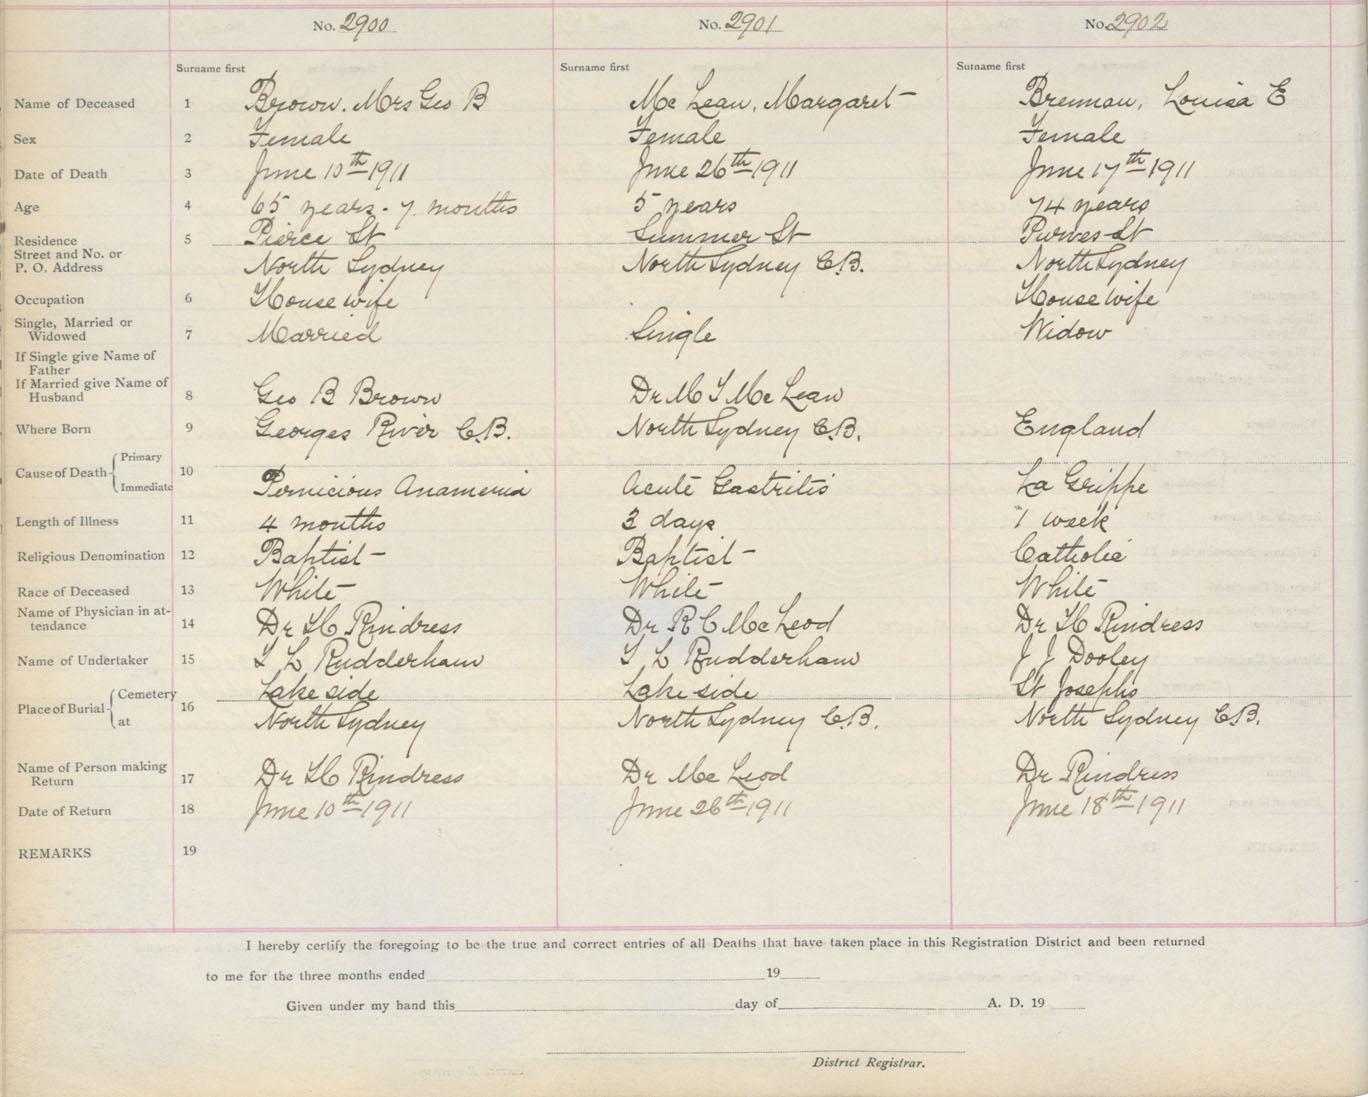 No. 2900 No. 2901 No. 2902
Surname first Surname first Surname first
Name of Deceased 1 Brown. Mrs Geo B Mc Lean, Margaret Brennan, Louisa E
Sex 2 Female Female Female
Date of Death 3 June 10th 1911 June 26th 1911 June 17th 1911
Age 4 65 years - 7 months 5 years 74 years
Residence 5 Pierce St Summer St Purves St
Street and No. or
P. O. Address North Sydney North Sydney C.B. North Sydney
Occupation 6 House wife House wife
Single, Married or
Widowed 7 Married Single Widow
If Single give Name of
Father
If Married give Name of
Husband 8 Geo B Brown Dr M T Mc Lean
Where Born 9 Georges River C.B. North Sydney C.B. England
Cause of Death Primary 10
Immediate Pernicious Anameria Acute Gastritis La Grippe
Length of Illness 11 4 months 3 days 1 week
Religious Denomination 12 Baptist Baptist Catholic
Race of Deceased 13 White White White
Name of Physician in at-
tendance 14 Dr H C Rindress Dr R C Mc Leod Dr H C Rindress
Name of Undertaker 15 T L Rudderham T L Rudderham J J Dooley
Place of Burial Cemetery 16 Lake side Lake side St Josephs
at North Sydney North Sydney C.B. North Sydney C.B.
Name of Person making
Return 17 Dr H C Rindress Dr Mc Leod Dr Rindress
Date of Return 18 June 10th 1911 June 26th 1911 June 18th 1911
REMARKS 19
I hereby certify the foregoing to be the true and correct entries of all Deaths that have taken place in this Registration District and been returned
to me for the three months ended 19
Given under my hand this day of A. D. 19
District Registrar.